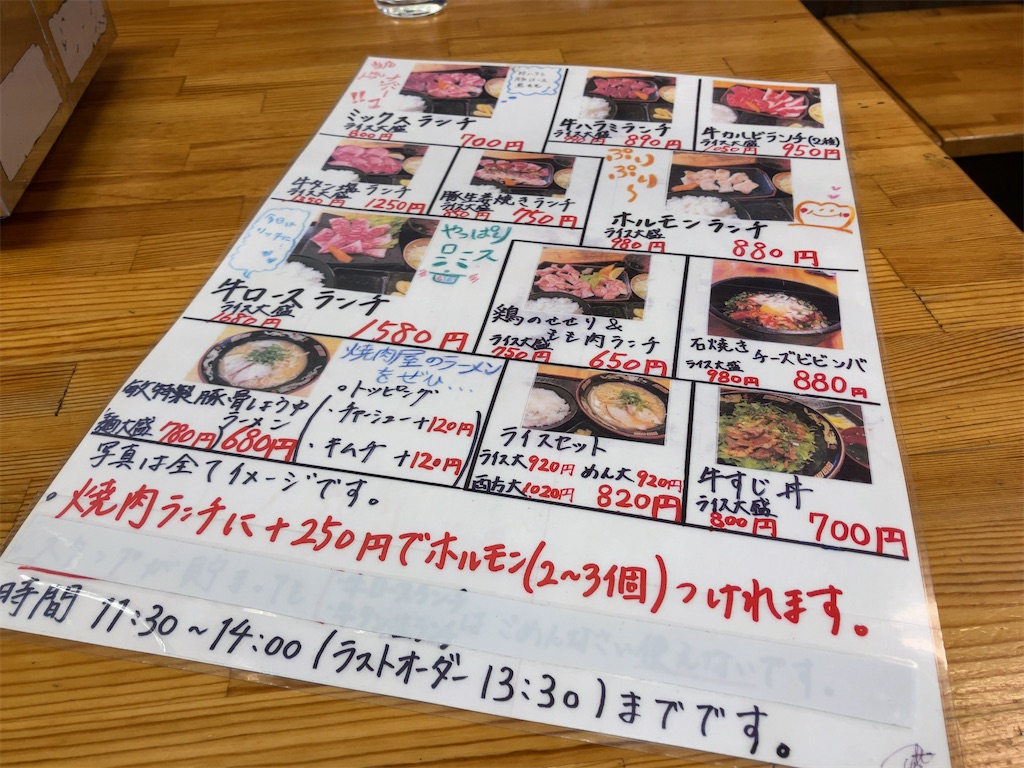 ミックスランチ
ライス大盛
800円
700円
牛ハラミランチ
ライス大盛
890円
牛カルビランチ(2種)
ライス大盛
1050円
950円
牛タン塩ランチ
ライス大盛
1350円
1250円
豚生姜焼きランチ
ライス大盛
850円
750円
ぷり
ぷり
〜
ホルモンランチ
ライス大盛
980円
880円
今日は
リッチに
やっぱり
ロース
牛ロースランチ
ライス大盛
1680円
1580円
鶏のせせり&
もも肉ランチ
ライス大盛
750円
650円
石焼き
チーズビビンバ
ライス大盛
980円
880円
焼肉屋のラーメン
をぜひ・・・
特製豚骨しょうゆ
ラーメン
麺大盛 780円
680円
。トッピング
・チャーシュー+120円
・キムチ +120円
ライスセット
ライス大920円 めん大920円
両方大1020円
820円
牛すじ丼
ライス大盛
800円
700円
写真は全てイメージです。
。焼肉ランチに+250円でホルモン(2~3個)つけれます。
時間 11:30~14:00(ラストオーダー 13:30)までです。